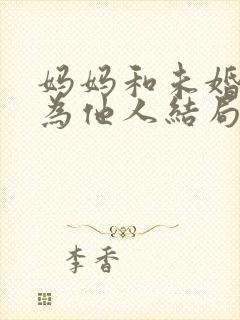 妈妈和未婚
為他人結局
李香